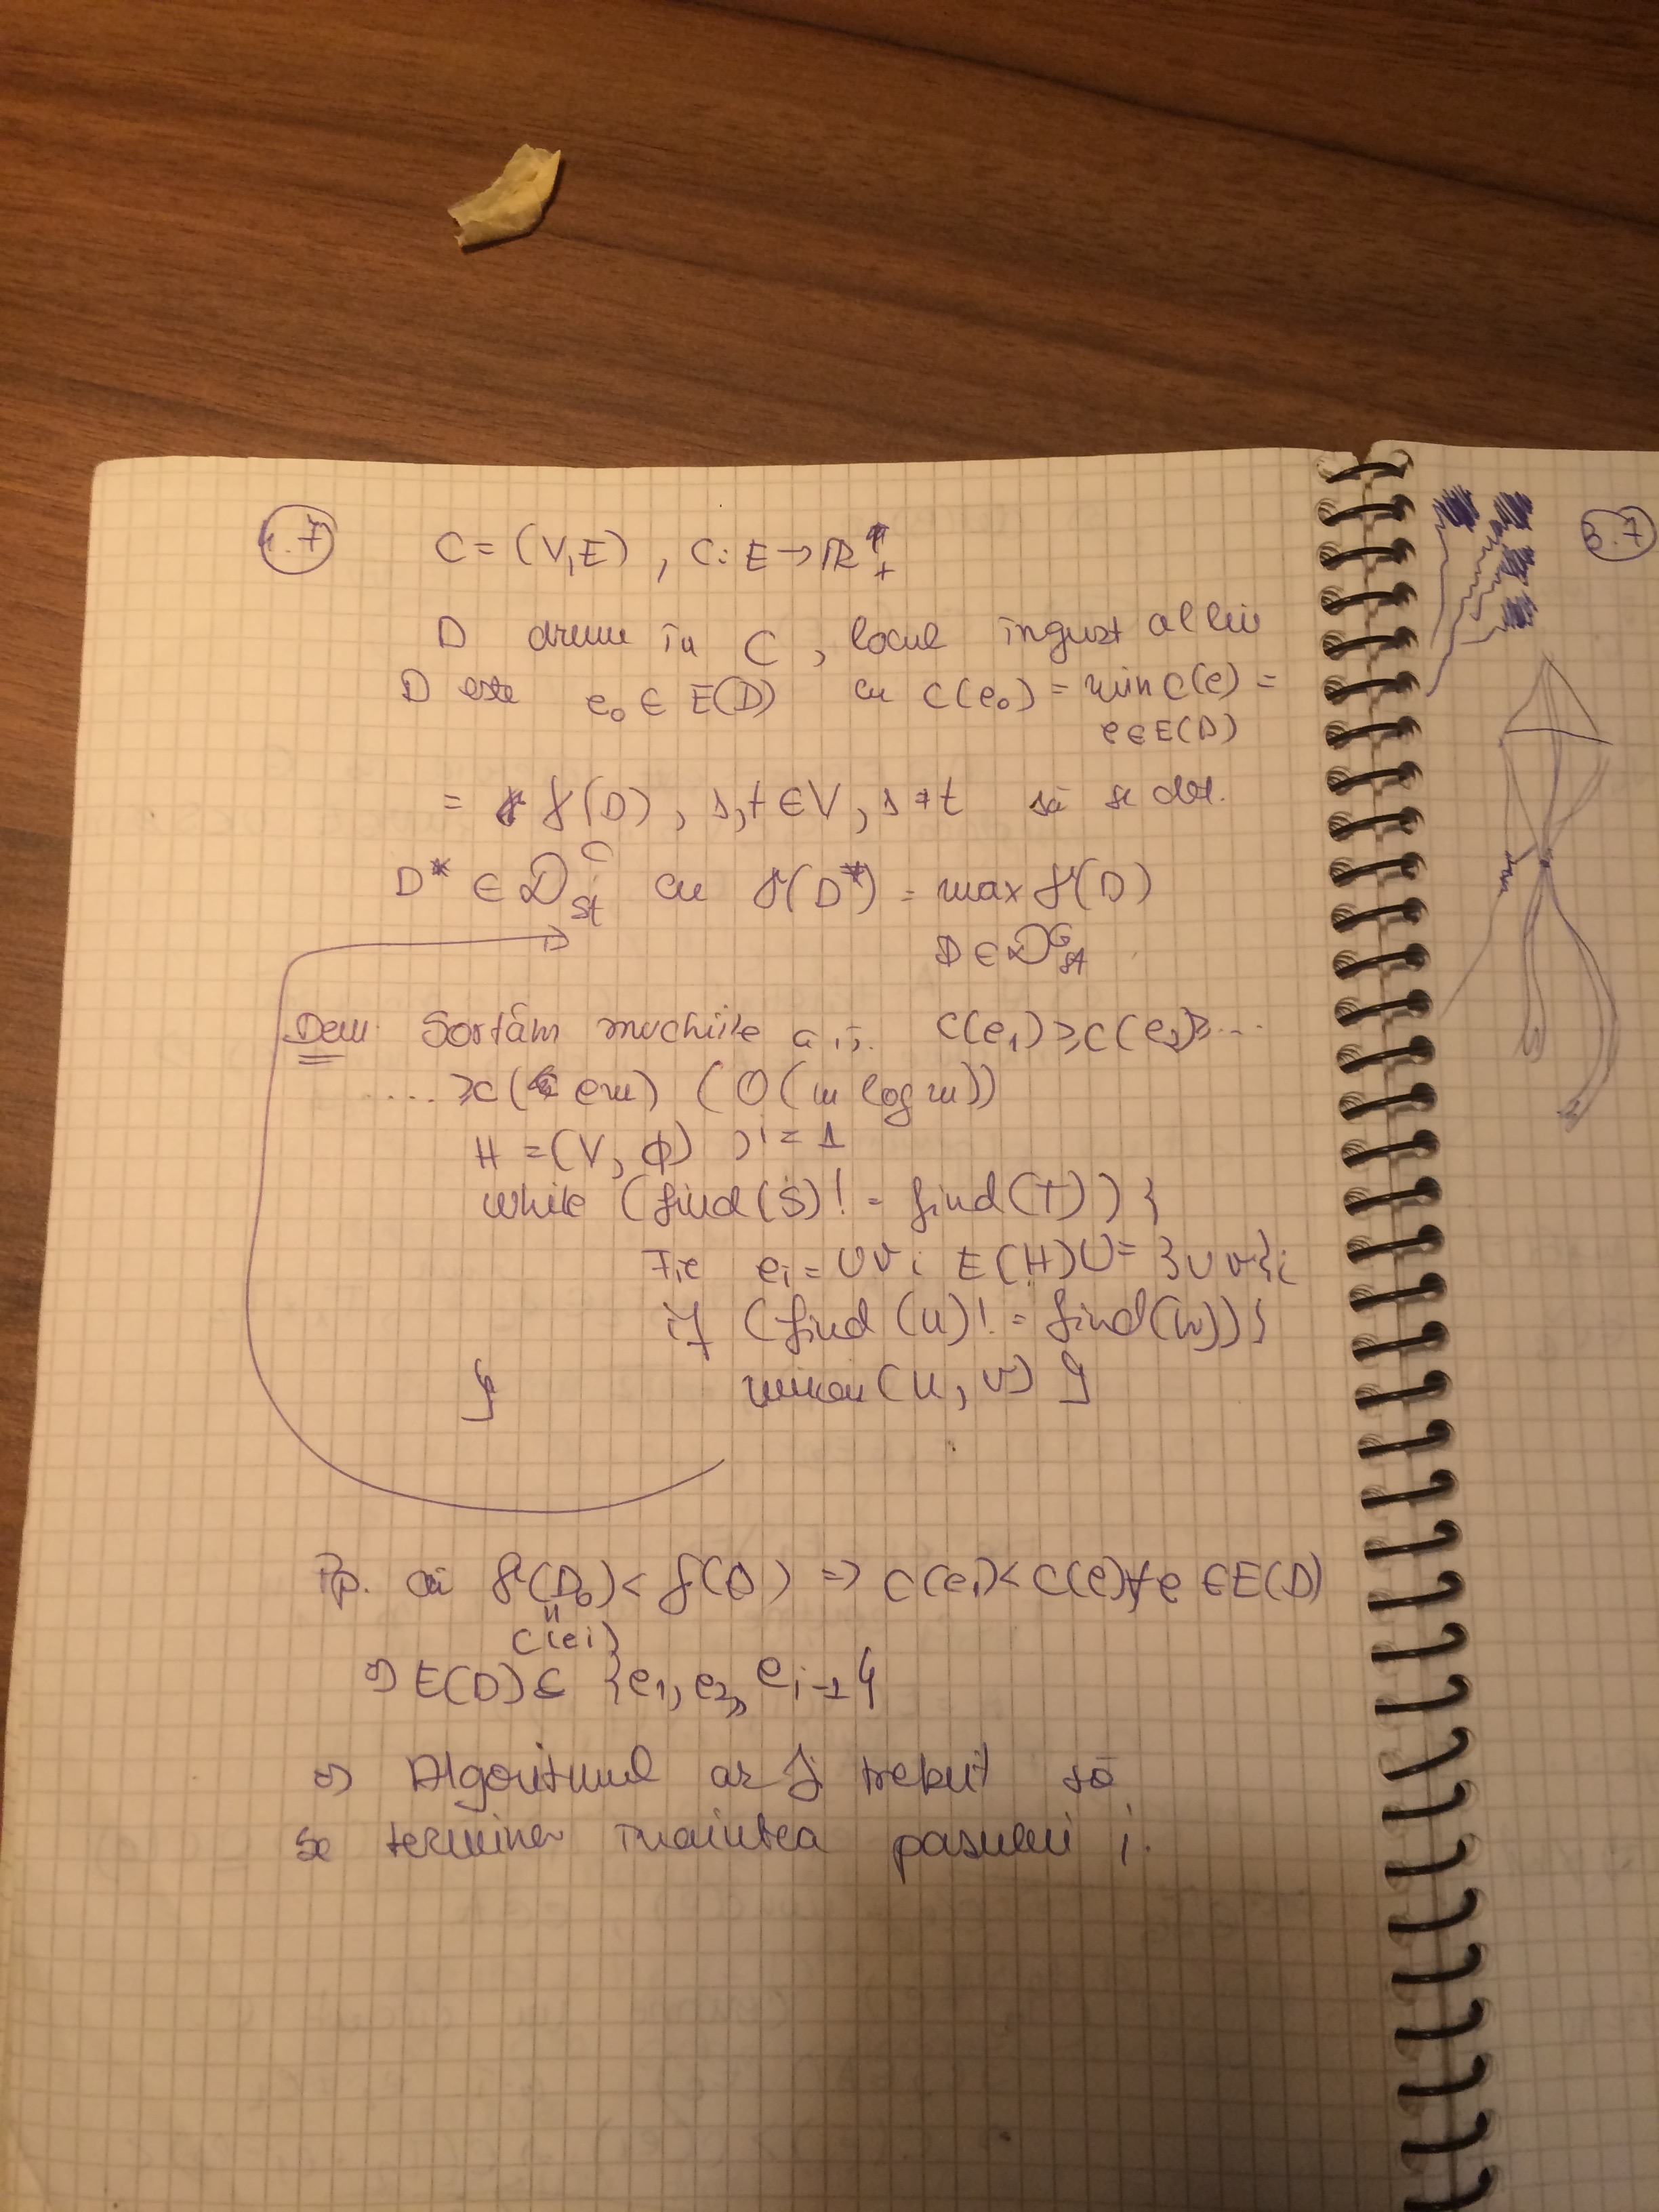 4.7
C = (V, E), C: E → ℝ*₊
D drum în C, locul îngust al lui
D este e₀ ∈ E(D) cu c(e₀) = min c(e) =
e ∈ E(D)
= γ(D), s, t ∈ V, s ≠ t să se det.
D* ∈ 𝒟ᴳ_st cu γ(D*) = max γ(D)
D ∈ 𝒟ᴳ_st
Dem Sortăm muchiile a.î. c(e₁) ≥ c(e₂) ≥ ...
.... ≥ c(em) (O(m log m))
H = (V, ∅), i = 1
while (find(S) != find(T)) {
Fie ei = UV; E(H) U= {UV};
if (find(u) != find(v)) {
union(u, v) }
}
Pp. că γ(D₀) < γ(D) => c(ei) < c(e) ∀e ∈ E(D)
"
c(ei)
=> E(D) ⊆ {e₁, e₂, ei-1}
=> Algoritmul ar fi trebuit să
se termine înaintea pasului i.
8.7